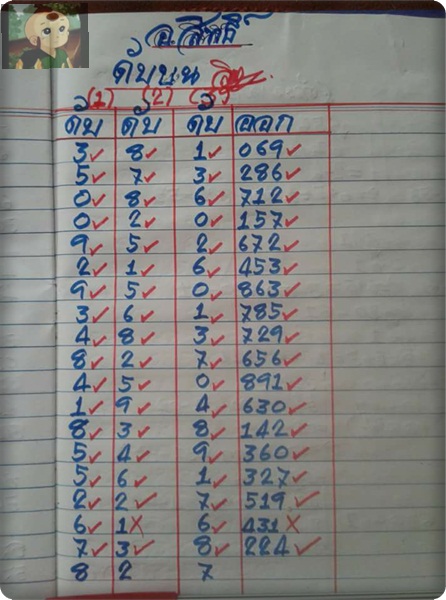 อ.สิทธิ์
ดับบน
(1) (2) (3)
ดับ ดับ ดับ ออก
3✓ 8✓ 1✓ 069✓
5✓ 7✓ 3✓ 286✓
0✓ 8✓ 6✓ 712✓
0✓ 2✓ 0✓ 157✓
9✓ 5✓ 2✓ 672✓
2✓ 1✓ 6✓ 453✓
9✓ 5✓ 0✓ 863✓
3✓ 6✓ 1✓ 785✓
4✓ 8✓ 3✓ 729✓
8✓ 2✓ 7✓ 656✓
4✓ 5✓ 0✓ 891✓
1✓ 9✓ 4✓ 630✓
8✓ 3✓ 8✓ 142✓
5✓ 4✓ 9✓ 360✓
5✓ 6✓ 1✓ 327✓
2✓ 2✓ 7✓ 519✓
6✓ 1✗ 6✓ 431✗
7✓ 3✓ 8✓ 224✓
8 2 7